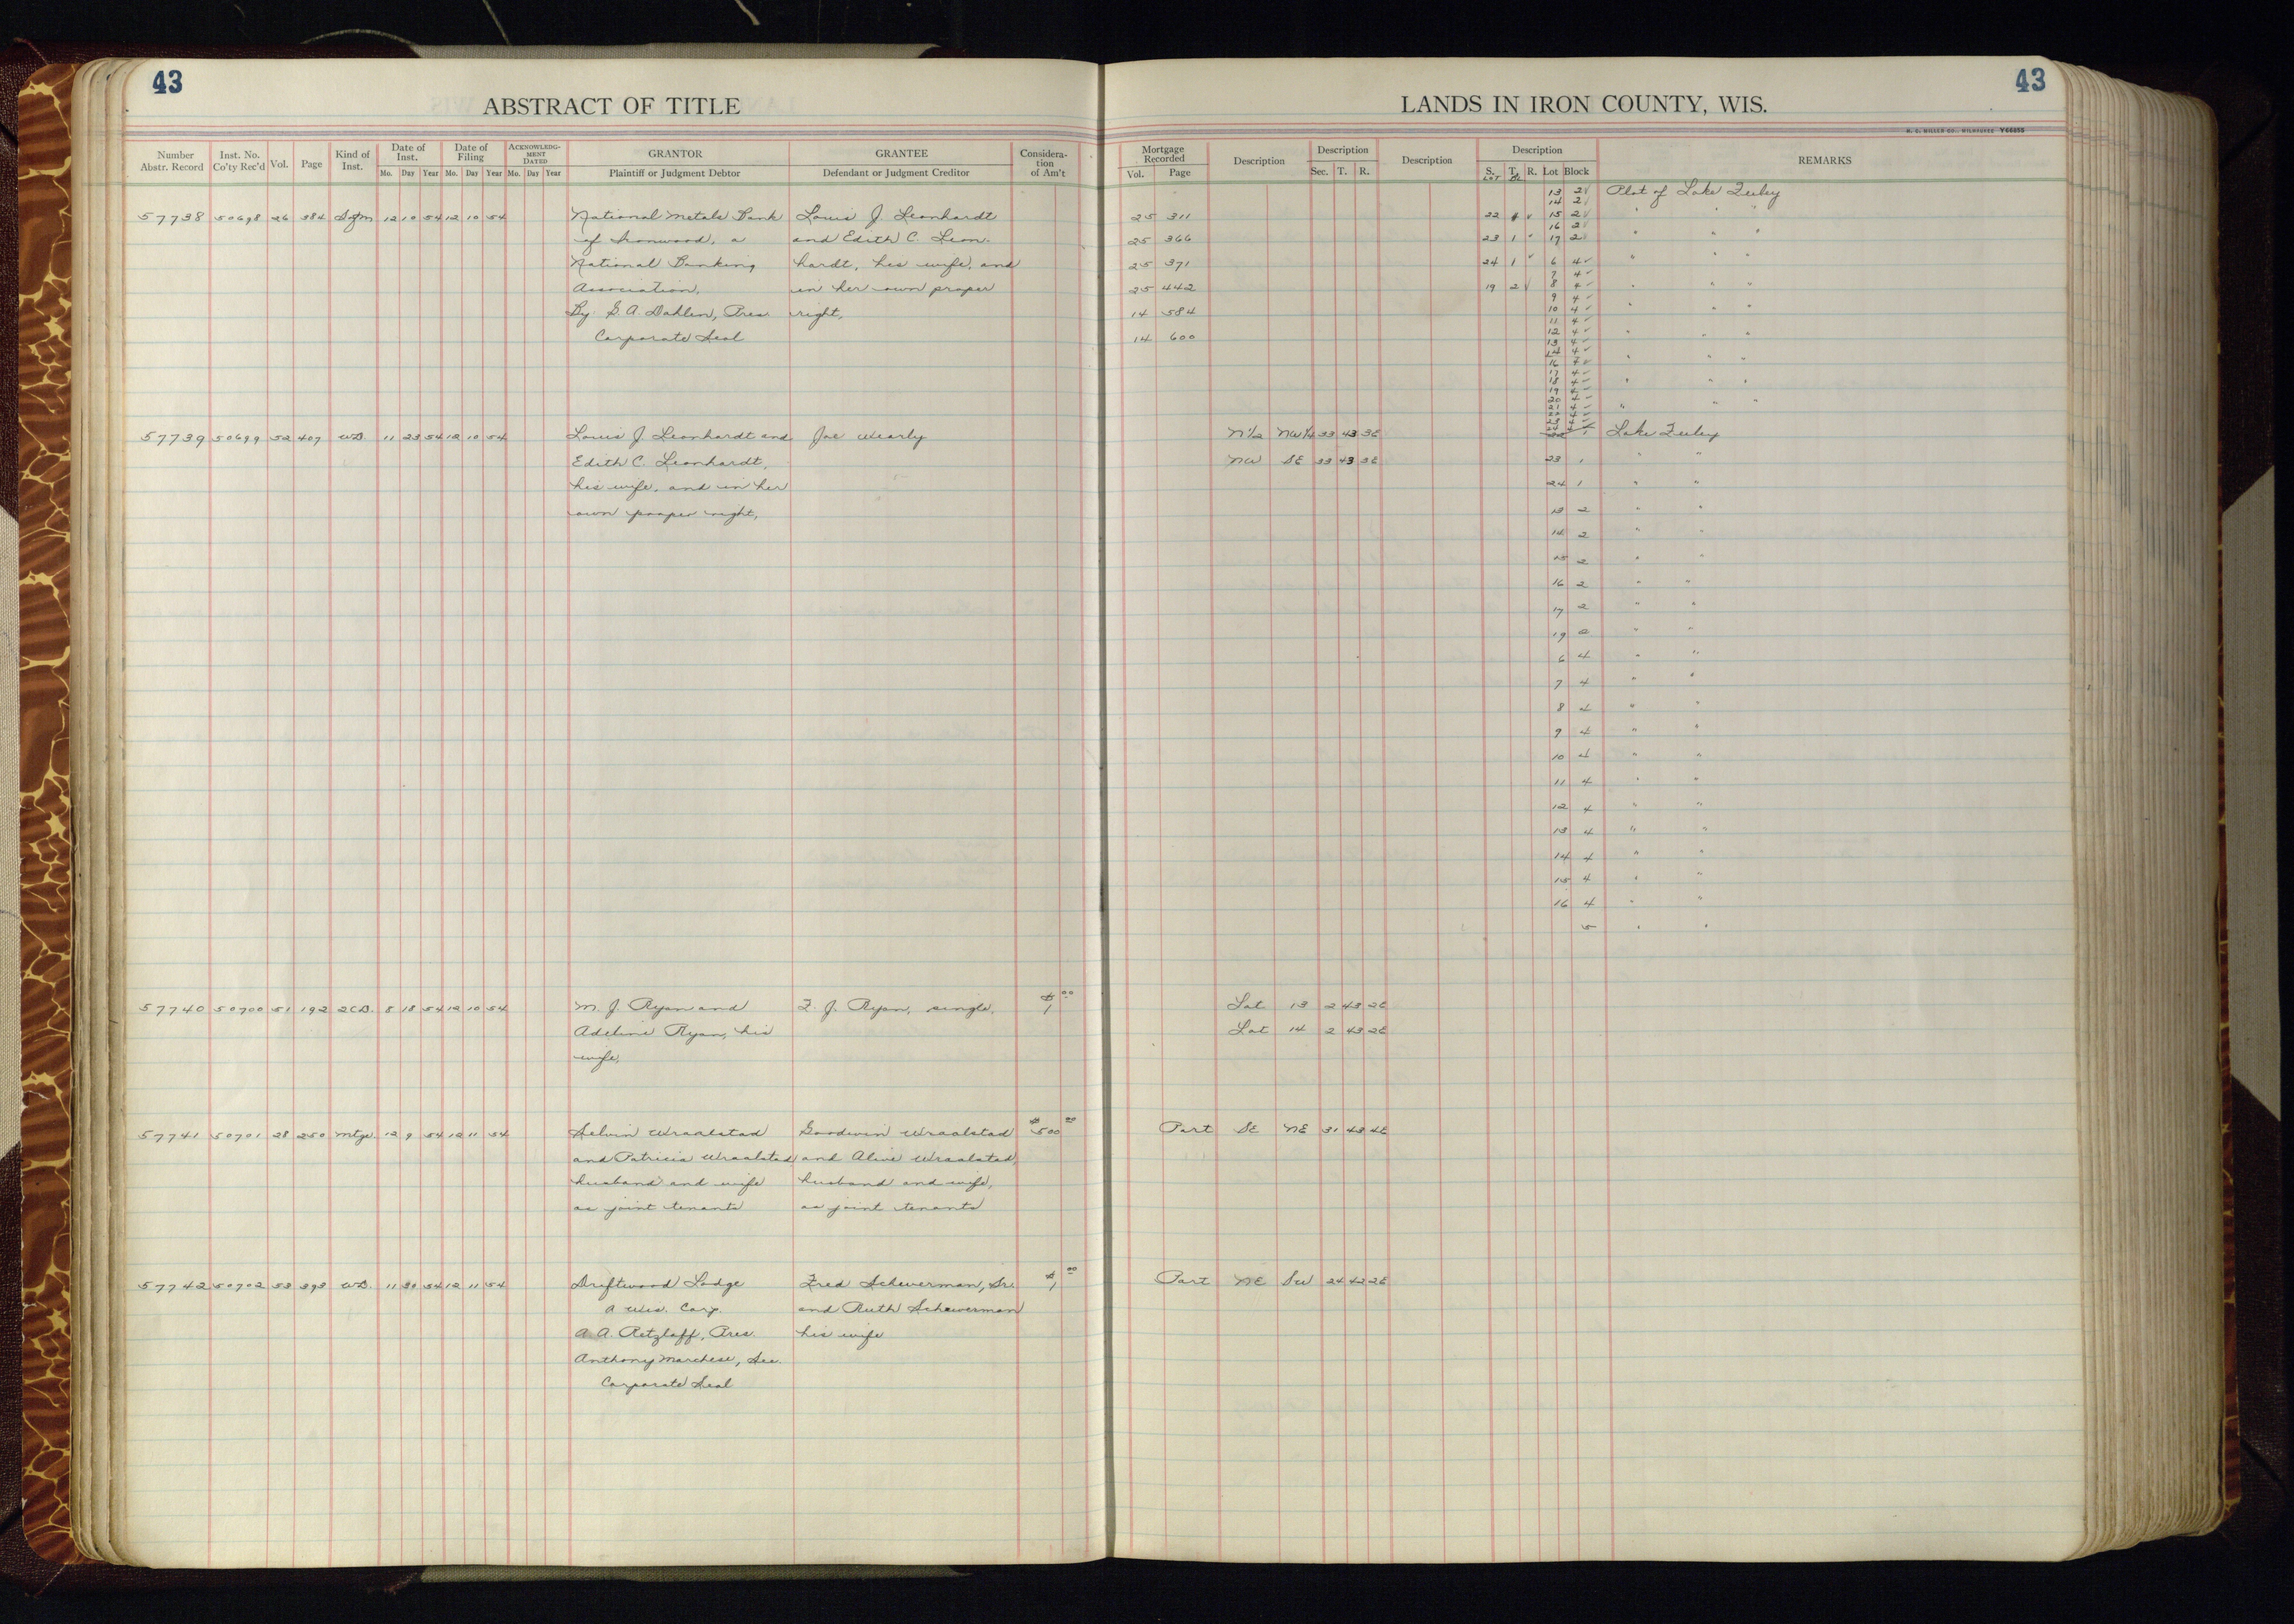 43
ABSTRACT OF TITLE
Number Abstr. Record Inst. No. Co'ty Rec'd Vol. Page Kind of Inst. Date of Inst. Date of Filing ACKNOWLEDG-MENT DATED GRANTOR GRANTEE Considera-tion of Am't
Mo. Day Year Mo. Day Year Mo. Day Year Plaintiff or Judgment Debtor Defendant or Judgment Creditor
57738 50698 26 384 12 10 54 12 10 54 National Metals Bank Louis J. Leonhardt
of Ironwood, a and Edith C. Leon-
National Banking hardt, his wife, and
Association, in her own proper
By: G. A. Dahlen, Pres. right,
Corporate Seal
57739 50699 52 407 WD. 11 23 54 12 10 54 Louis J. Leonhardt and Joe Wearly
Edith C. Leonhardt,
his wife, and in her
own proper right,
57740 50700 51 192 2CD. 8 18 54 12 10 54 M. J. Ryan and F. J. Ryan, single, $1 00
Adeline Ryan, his
wife,
57741 50701 28 250 Mtge 12 9 54 12 11 54 Selvin Wraalstad Goodwin Wraalstad $500 00
and Patricia Wraalstad and Alive Wraalstad,
husband and wife husband and wife,
as joint tenants as joint tenants
57742 50702 53 393 WD. 11 30 54 12 11 54 Driftwood Lodge Fred Scheverman, Sr. $1 00
a Wis. Corp. and Ruth Scheverman
A. A. Retzlaff, Pres. his wife
Anthony Marchese, Sec.
Corporate Seal
43
LANDS IN IRON COUNTY, WIS.
H. C. MILLER CO., MILWAUKEE Y66655
Mortgage Recorded Description Description Description Description REMARKS
Vol. Page Sec. T. R. S. T. R. Lot Block
LOT BL
13 2 Plat of Lake Zuley
14 2
25 311 22 1 15 2 " " "
16 2
25 366 23 1 17 2 " " "
25 371 24 1 6 4 " " "
7 4
25 442 19 2 8 4 " " "
9 4
14 584 10 4 " " "
11 4
14 600 12 4 " " "
13 4
14 4 " " "
16 4
17 4
18 4 " " "
19 4
20 4
21 4 " " "
22 4
23 4
24 4
N1/2 NW1/4 33 43 3E 22 1 Lake Zuley
NW SE 33 43 3E 23 1 " "
24 1 " "
13 2 " "
14 2 " "
15 2 " "
16 2 " "
17 2 " "
19 2 " "
6 4 " "
7 4 " "
8 4 " "
9 4 " "
10 4 " "
11 4 " "
12 4 " "
13 4 " "
14 4 " "
15 4 " "
16 4 " "
5 " "
Lot 13 2 43 2E
Lot 14 2 43 2E
Part SE NE 31 43 4E
Part NE SW 24 42 2E